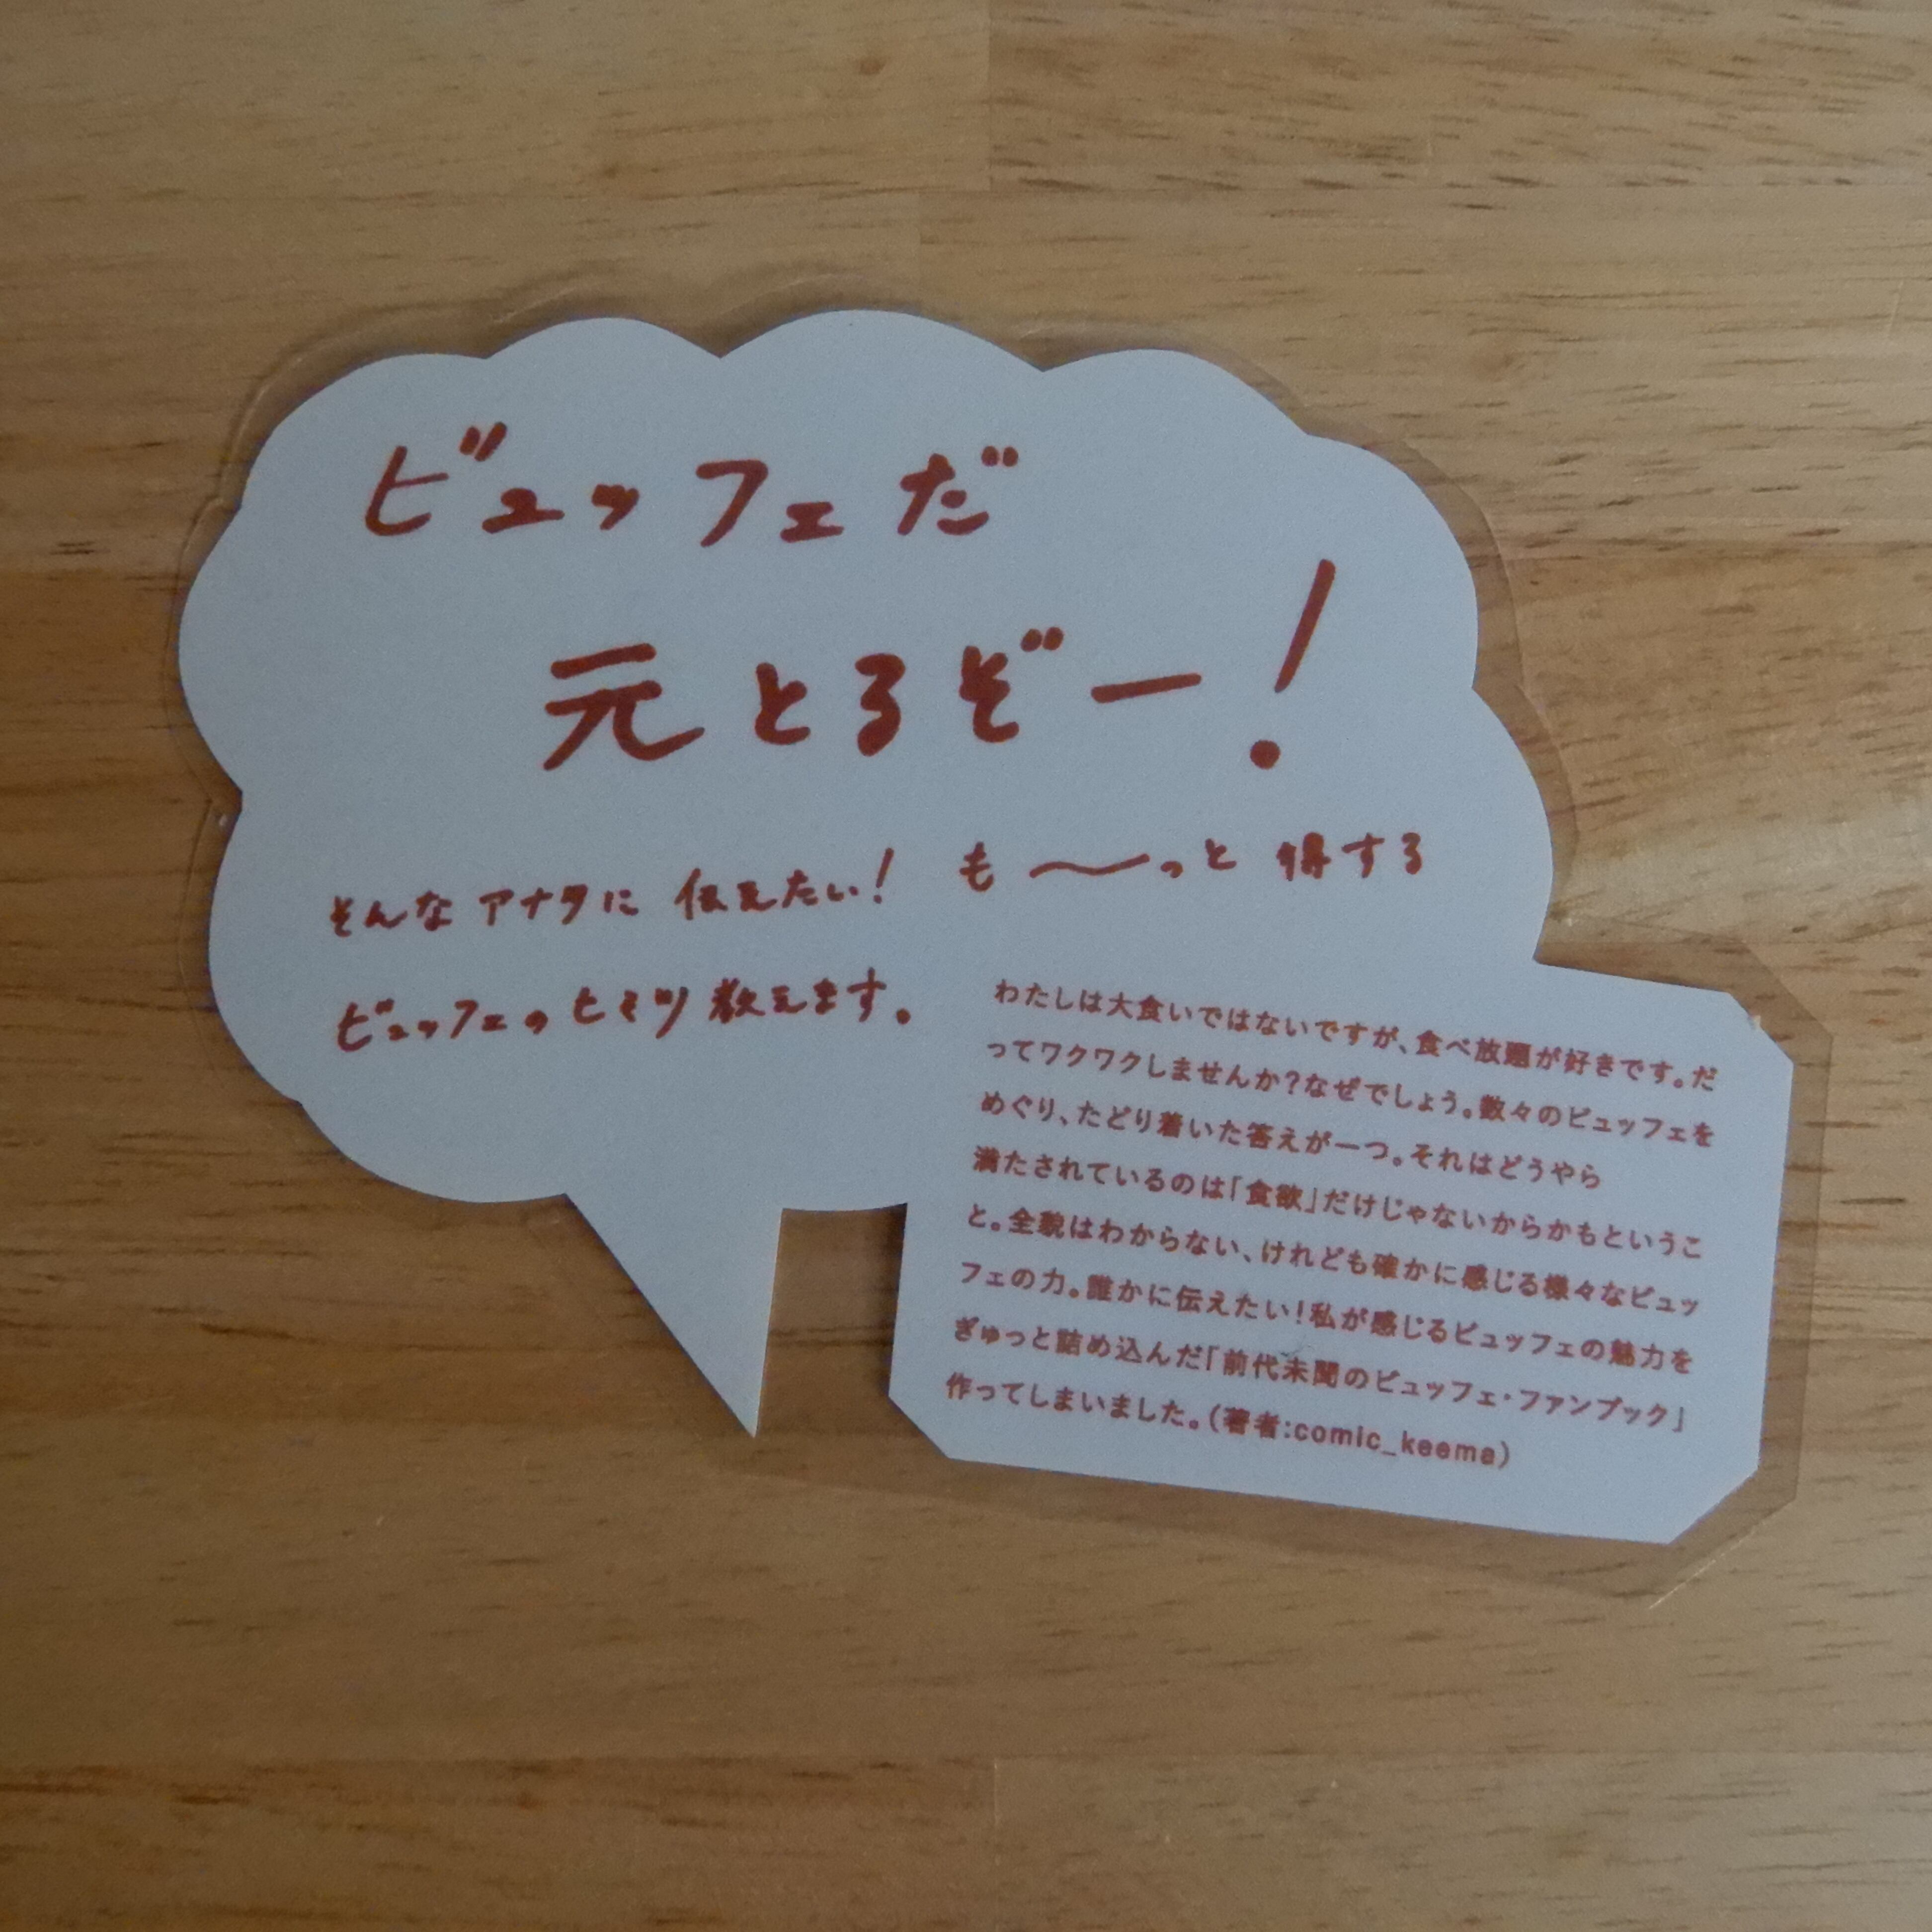 ビュッフェだ
元とるぞー！
そんなアナタに 伝えたい！ も〜っと 得する
ビュッフェのヒミツ 教えます。
わたしは大食いではないですが、食べ放題が好きです。だ
ってワクワクしませんか？なぜでしょう。数々のビュッフェを
めぐり、たどり着いた答えが一つ。それはどうやら
満たされているのは「食欲」だけじゃないからかもというこ
と。全貌はわからない、けれども確かに感じる様々なビュッ
フェの力。誰かに伝えたい！私が感じるビュッフェの魅力を
ぎゅっと詰め込んだ「前代未聞のビュッフェ・ファンブック」
作ってしまいました。（著者:comic_keema）